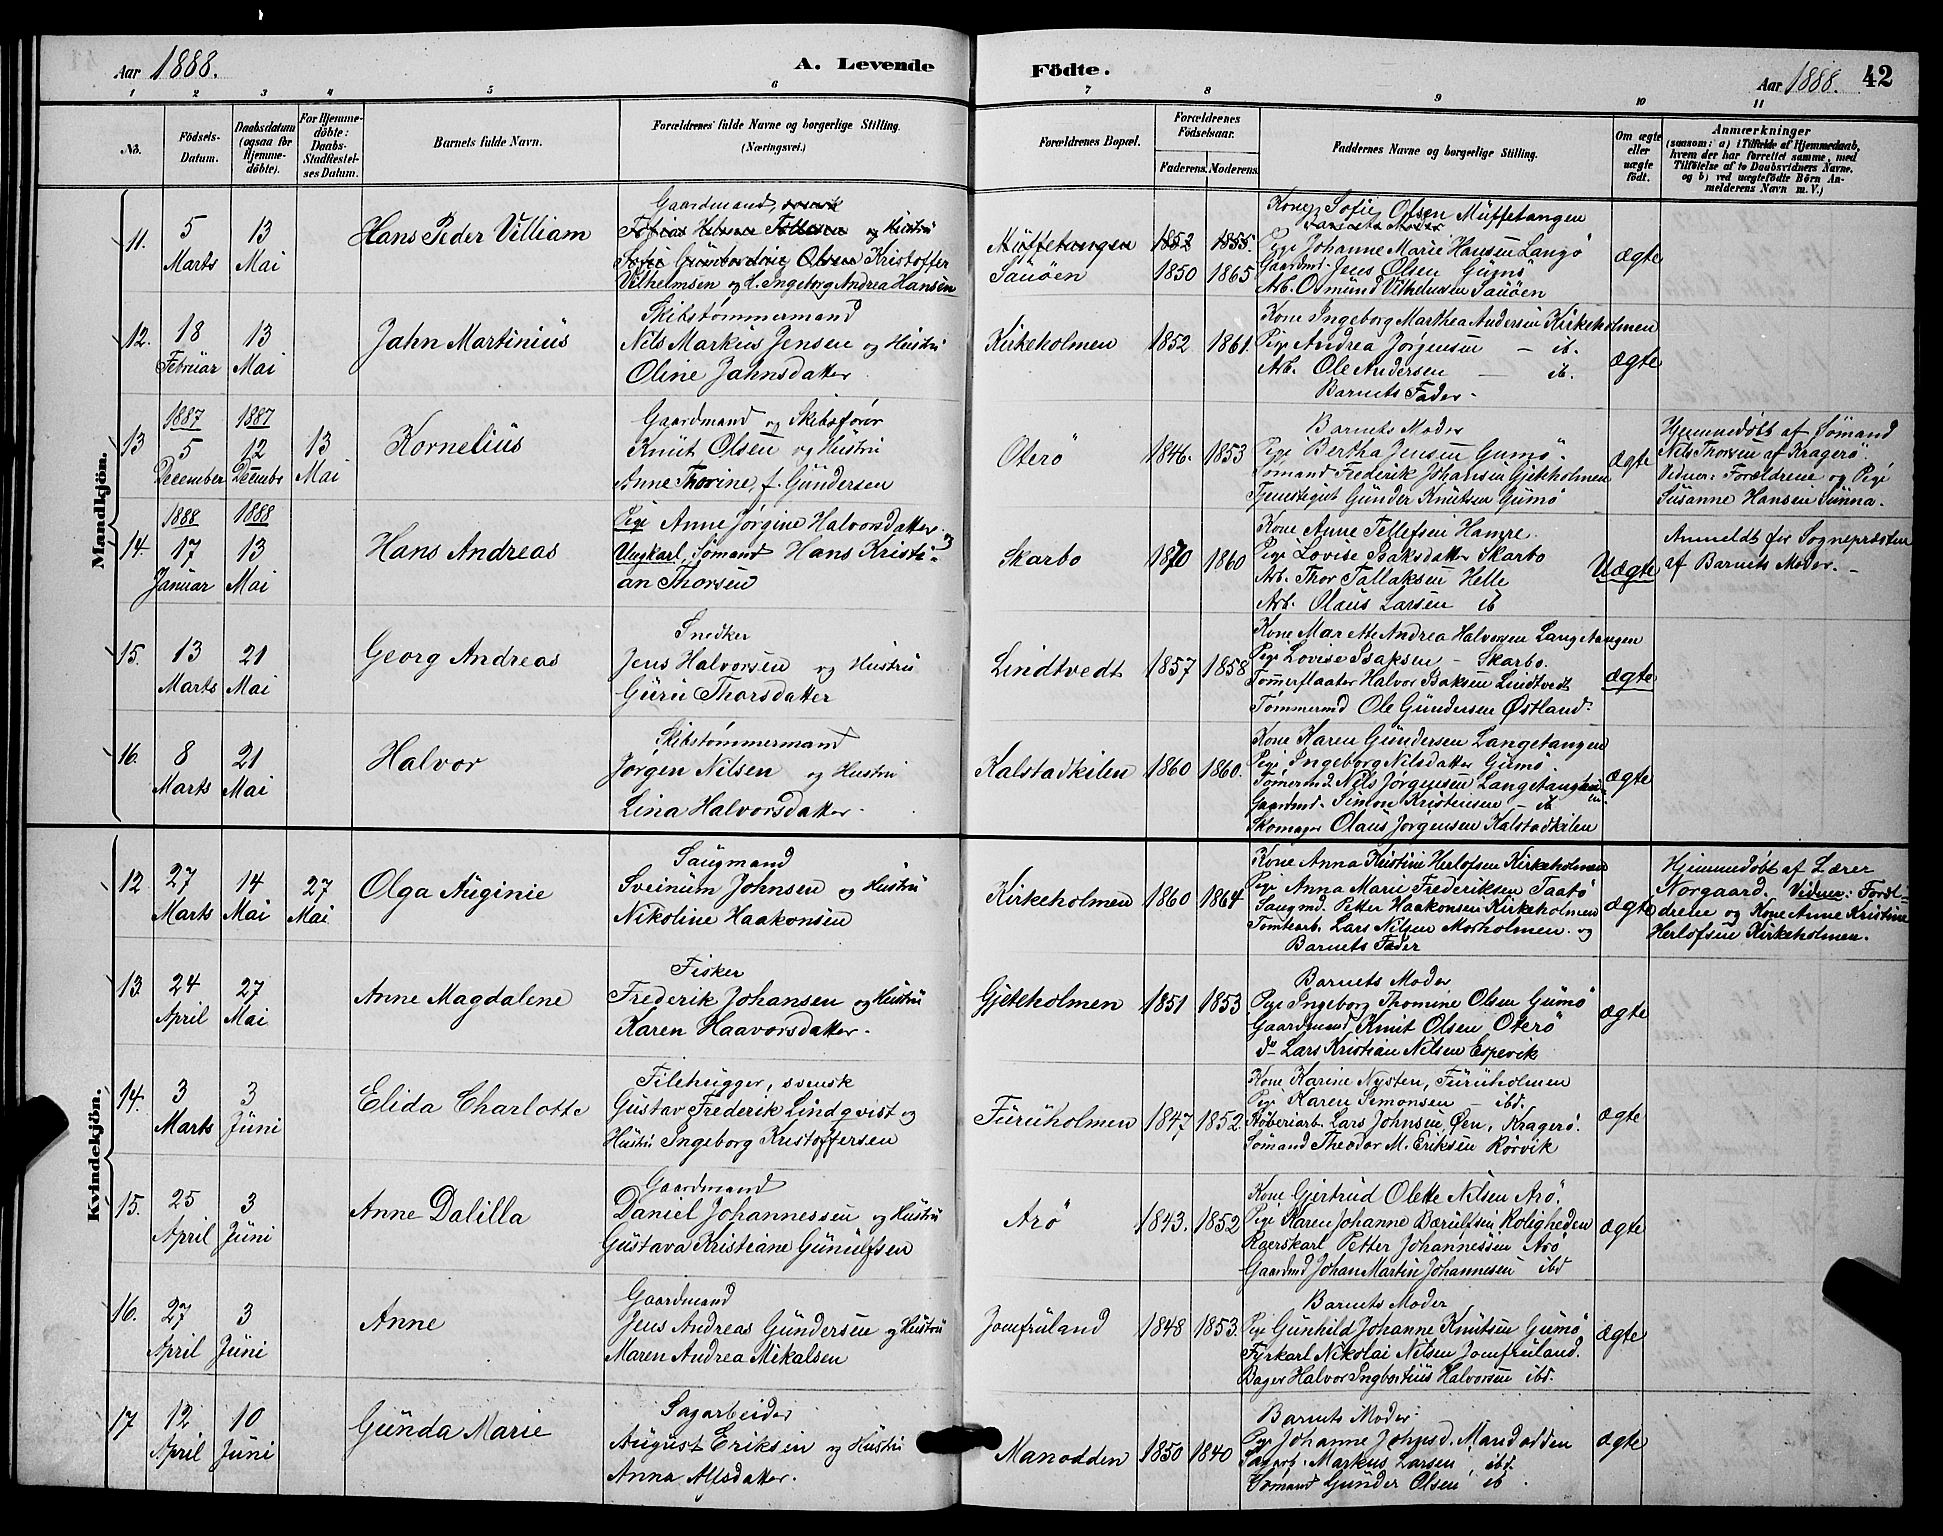 Aar 1888.
A. Levende Födte.
Aar 1888. 42
1 2 3 4 5 6 7 8 9 10 11
No.
Födsels-Datum.
Daabsdatum (ogsaa for Hjemme-döbte).
For Hjemme-döbte: Daabs-Stadfæstel-ses Datum.
Barnets fulde Navn.
Forældrenes fulde Navne og borgerlige Stilling.
(Næringsvei.)
Forældrenes Bopæl.
Forældrenes Födselsaar.
Faderens. Moderens.
Faddernes Navne og borgerlige Stilling.
Om ægte eller uægte født.
Anmærkninger
(saasom: a) i Tilfælde af Hjemmedaab,
hvem der har forrettet samme, med
Tilföielse af to Daabsvidners Navne.
og b) ved uægtefödte Börn An-
melderens Navn m. V.)
Mandkjön.
11.
5 Marts
13 Mai
Hans Peder Villiam
Gaardmand, svensk
Tobias Helmer Tellefsen og Hustru
Sofie Olsen Kristoffer
Vilhelmsen og H. Ingeborg Andrea Hansen
Müffetangen 1852 1855.
Sauöen 1850 1865
Kone Sofie Olsen Müffetangen
Barnets Moder
Pige Johanne Marie Hansen Langö
Gaardmd. Jens Olsen Gumö
Arb. Osmund Vilhelmsen Sauöen
ægte
12.
18 Februar
13 Mai
Jahn Martinius
Skibstømmermand
Nils Markus Jensen og Hustru
Oline Jahnsdatter
Kirkeholmen 1852 1861.
Kone Ingeborg Marthea Andersen Kirkeholmen
Pige Andrea Jörgensen — ib.
Arb. Ole Andersen — ib.
Barnets Fader.
ægte
13
1887 5 December
1887 12 Decembr
13 Mai
Kornelius
Gaardmand og Skibsförer
Knut Olsen og Hustru
Anne Thorine, f. Gundersen
Oterö 1846. 1853
Barnets Moder
Pige Bertha Jensen Gumö.
Sømand Frederik Johansen Gjeteholmen
Tjenestegut Gunder Knutsen Gumö
ægte
Hjemmedøbt af Sømand
Nils Thorsen af Kragerö.
Vidner: Forældrene og Pige
Susanne Hansen
14.
1888 17 Januar
1888 13 Mai
Hans Andreas
Pige Anne Jørgine Halvorsdatter og
Ungkarl, Sømand Hans Kristi-
an Thorsen
Skarbo 1870 1860
Kone Anne Tellefsen Hamre.
Pige Lovise Isaksdatter Skarbo
Arb. Thor Tallaksen Helle
Arb. Olaus Larsen ib
Uægte
Anmeldt for Sognepræsten
af Barnets Moder. —
15.
13 Marts
21 Mai
Georg Andreas
Snedker
Jens Halvorsen og Hustru
Guru Thorsdatter
Lindtvedt 1857 1858
Kone Marette Andrea Halvorsen Langetangen
Pige Lovise Isaksen — Skarbo.
Tømmerflaater Halvor Isaksen Lindtvedt
Tømmermd Ole Gundersen Østland.
ægte
16.
8 Marts
21 Mai
Halvor
Skibstømmermand
Jørgen Nilsen og Hustru
Lina Halvorsdatter.
Kalstadkilen 1860 1860.
Kone Karen Gundersen Langetangen
Pige Ingeborg Nilsdatter Gumö
Tømermd. Nils Jørgensen Langetangen
Gaardmd. Simon Kristensen — ib
Skomager Olaus Jørgensen Kalstadkilen
ægte
Kvindekjön.
12.
27 Marts
14 Mai
27 Mai
Olga Auginie
Saugmand
Sveinum Johnsen og Hustru
Nikoline Haakonsen
Kirkeholmen 1860 1864
Kone Anna Kristine Herlofsen Kirkeholmen
Pige Anna Marie Frederiksen Taatö
Saugmd. Petter Haakonsen Kirkeholmen
Tomtearb. Lars Nilsen Morholmen og
Barnets Fader
ægte
Hjemmedøbt af Lærer
Norgaard. Vidner: Foræl-
drene og Kone Anne Kristine
Herlofsen Kirkeholmen.
13.
24 April
27 Mai
Anne Magdalene
Fisker
Frederik Johansen og Hustru
Karen Haavorsdatter.
Gjeteholmen 1851 1853
Barnets Moder
Pige Ingeborg Thomine Olsen Gumö
Gaardmand Knut Olsen Oterö
do Lars Kristian Nilsen Espevik
ægte
14.
3 Marts
3 Juni
Elida Charlotte
Filehugger, svensk
Gustav Frederik Lindqvist og
Hustru Ingeborg Kristoffersen
Furuholmen 1847 1852
Kone Karine Nysten, Furuholmen
Pige Karen Simonsen — ibd.
Støberiarb. Lars Johnsen, Øen, Kragerö.
Sømand Theodor M. Eriksen Rörvik
ægte
15.
25 April
3 Juni
Anne Dalilla
Gaardmand
Daniel Johannessen og Hustru
Gustava Kristiane Gunulfsen
Arö 1843. 1852
Kone Gjertrud Olette Nilsen Arö.
Pige Karen Johanne Bærulfsen Roligheden
Ungkarl Petter Johannessen Arö
Gaardmd Johan Martin Johannesen ibd
ægte
16.
27 April
3 Juni
Anne
Gaardmand
Jens Andreas Gundersen og Hustru
Maren Andrea Mikalsen
Jomfruland 1848 1853.
Barnets Moder
Pige Gunhild Johanne Knutsen Gumö
Fyrkarl Nikolai Nilsen Jomfruland.
Bager Halvor Ingbortius Halvorsen ibd.
ægte
17
12 April
10 Juni
Gunda Marie
Sagarbeider
August Eriksen og Hustru
Anna Allsdatter.
Manodden 1850 1840
Barnets Moder
Pige Johanne Johnsd. Manodden
Sagarb. Markus Larsen ibd.
Sømand Gunder Olsen ib.
ægte